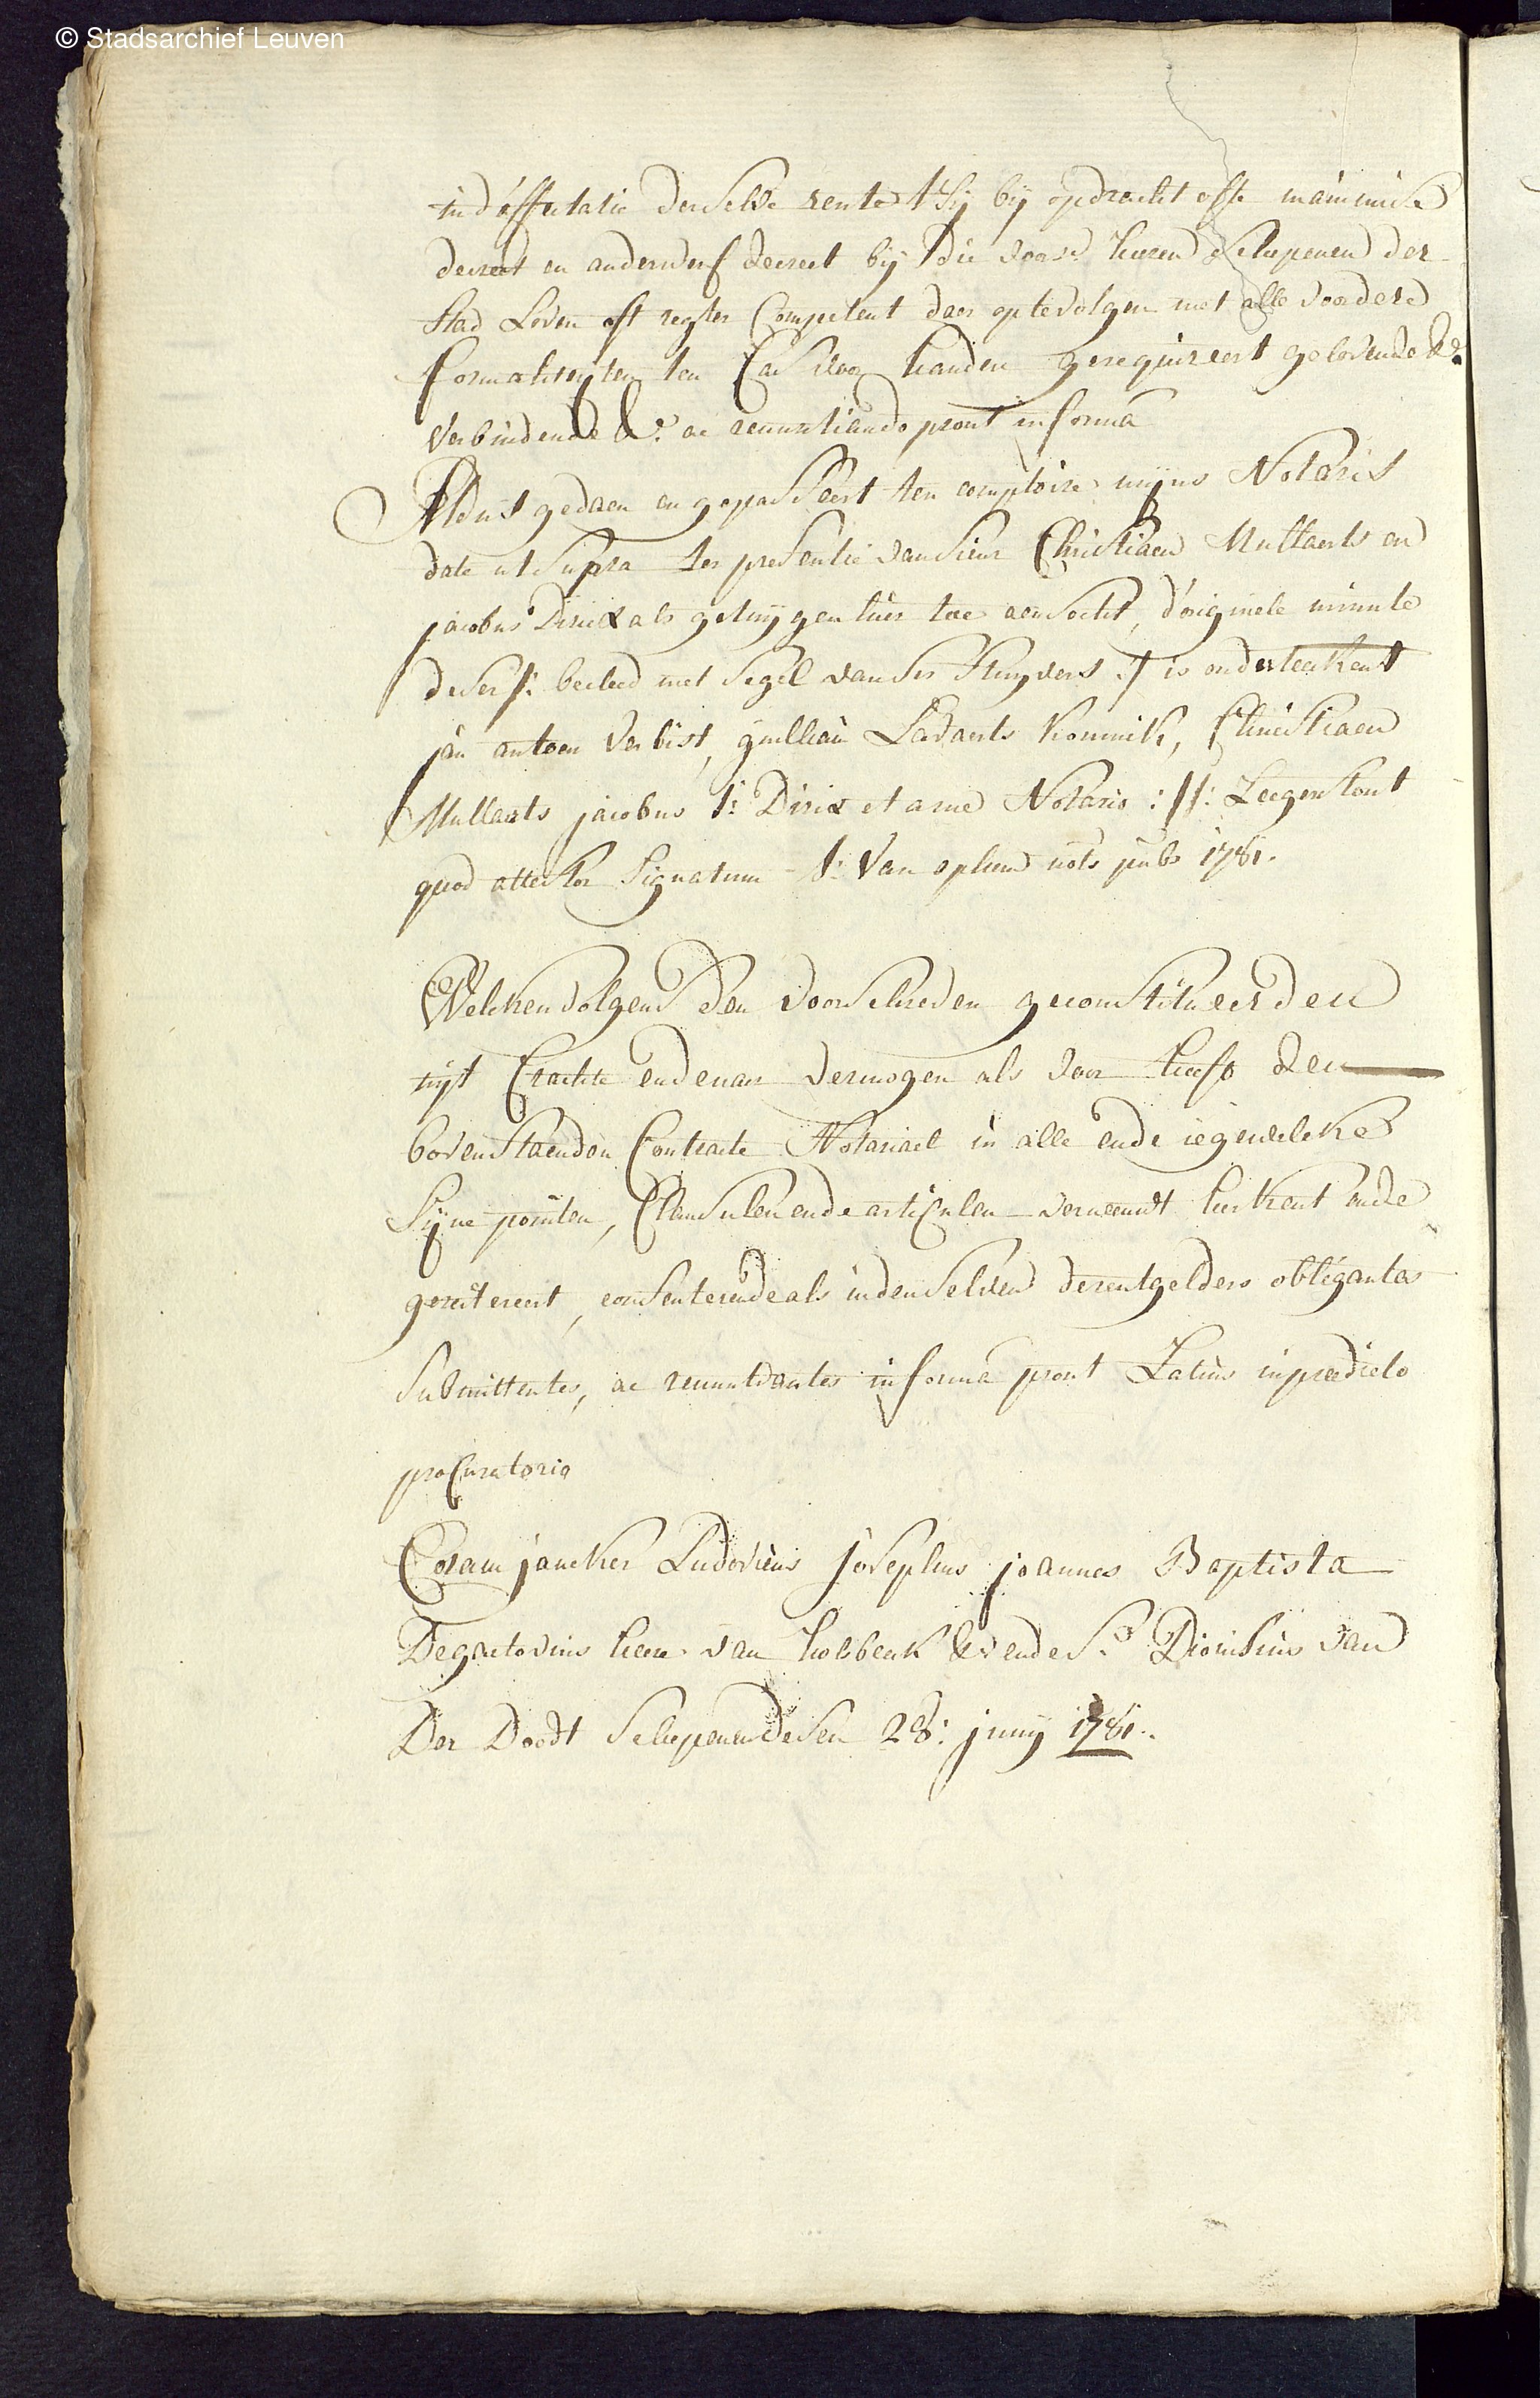 © Stadsarchief Leuven
ind'affectatie derselve rente t'sij bij opdracht ofte mainmise
decreet en anderwerf decreet bij die voors: heeren schepenen der
stad Loven oft regter Competent daer op te volgen met alle voordere
formaliteyten ten Casu voor handen gerequireert gelovende &a:
verbindende &a: ac renuntiando prout in forma
Aldus gedaen en gepasseert ten comptoire mijns Notaris
date ut supra ter presentie van sieur Christiaen Mullaerts en
jacobus Dirix als getuygen hier toe aensocht, d'originele minute
deser /: becleed met segel van ses stuyvers :/ is onderteekent
jan antoen Verbist, guilliam Ladaerts konninck, Christiaen
Mullaerts jacobus Dirix et a me Notario :/: Leegenstont
quod attestor signatum Van ophem nots pubs 1781.
Welckenvolgens den voorschreden geconstitueerden
uyt Crachte ende naer vermogen als voor heeft den
bovenstaenden Contracte Notariael in alle ende iegewelcke
sijne pointen, Clausulen ende articulen vernieuwt herkent ende
gereitereert, consenterende als inden selven derentgelders obligantes
submittentes, ac renuntiantes in forma prout Latius in praedicto
procuratorio
Coram joncker Ludovicus josephus joannes Baptista
Degrutovius heere van holsbeek &a ende Sr. Dionisius van
Der Doodt schepenen desen 28: junij 1781.